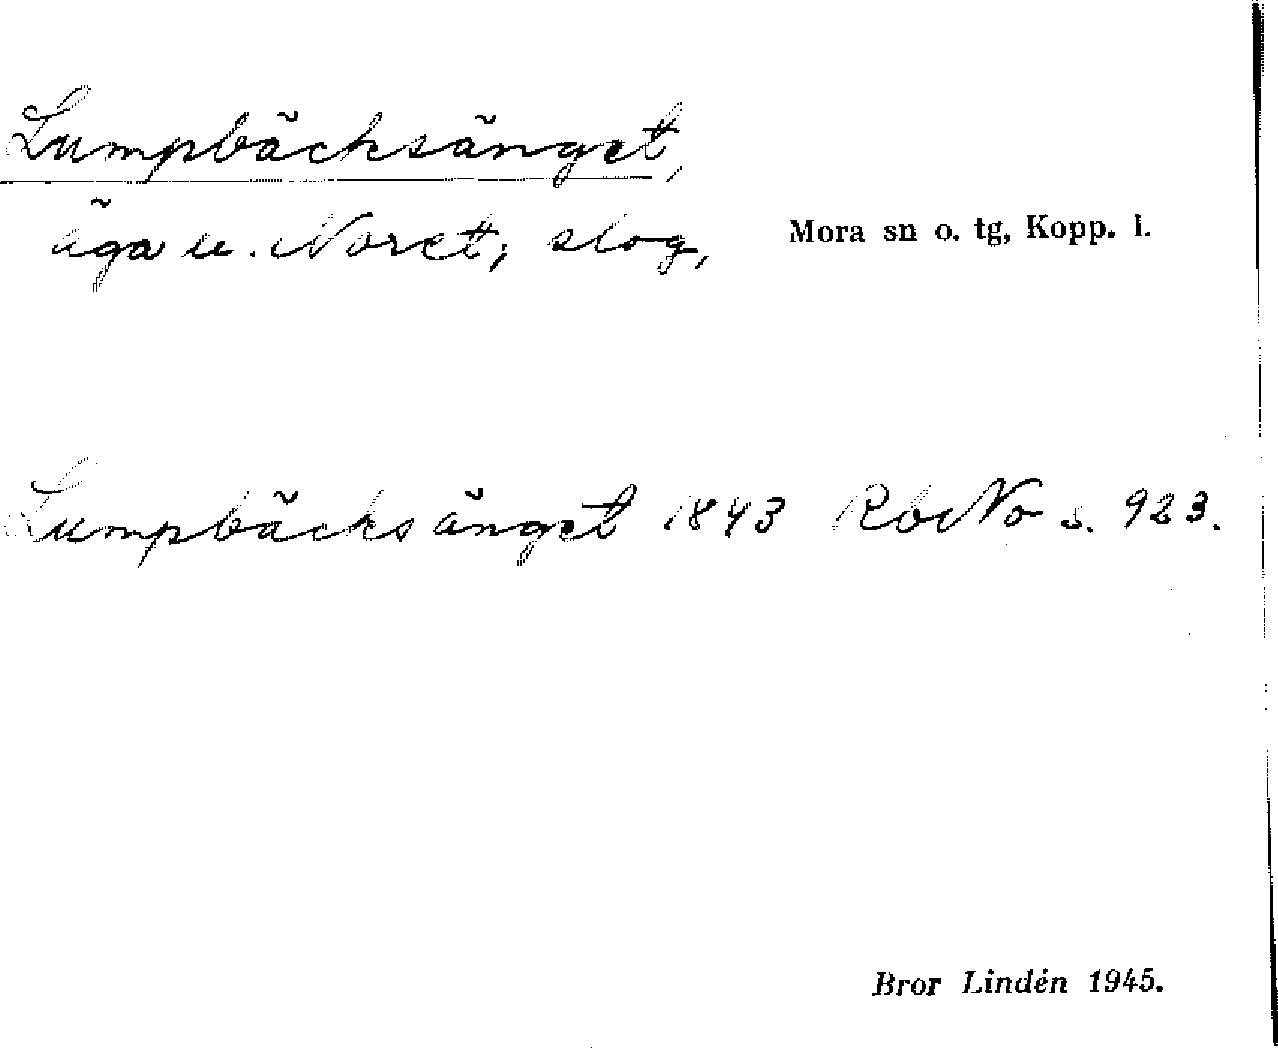 Lumpbäcksänget,
äga u. Noret, slog,
Mora sn o. tg, Kopp. l.
Lumpbäcksänget 1843 RbNo s. 923.
Bror Lindén 1945.